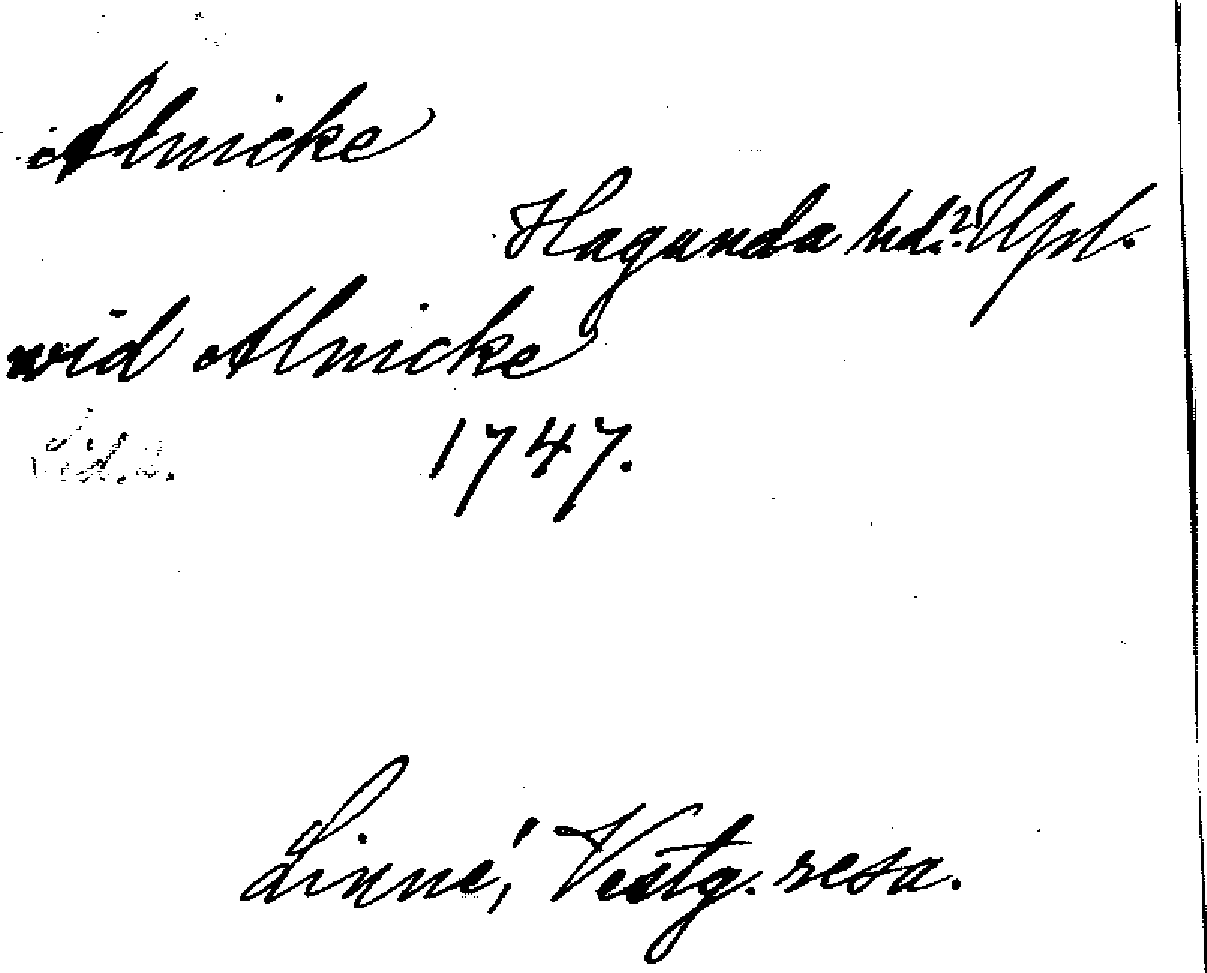 Alnicke
Hagunda hd.? Upl.
wid Alnicke
Sid. 2. 1747.
Linné, Vestg. resa.